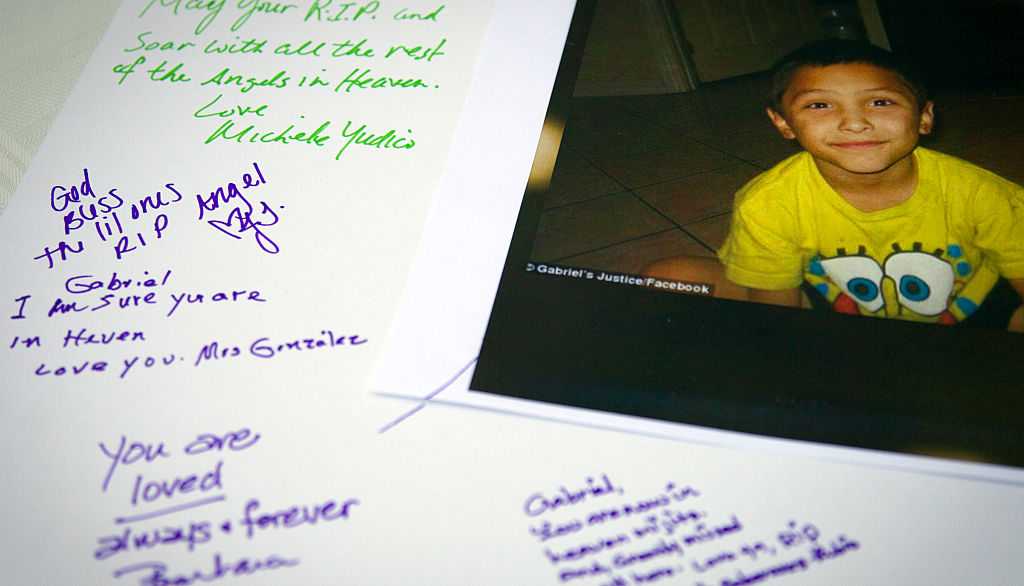 May your R.I.P. and
Soar with all the rest
of the Angels in Heaven.
Love
Michele Yudico
God
Bless
the lil ones Angel
RIP
Gabriel
I am sure you are
in Heven
Love you. Mrs González
You are
loved
always & forever
Barbara
© Gabriel's Justice/Facebook
Gabriel,
You are now in
heaven mijito.
missed
RIP